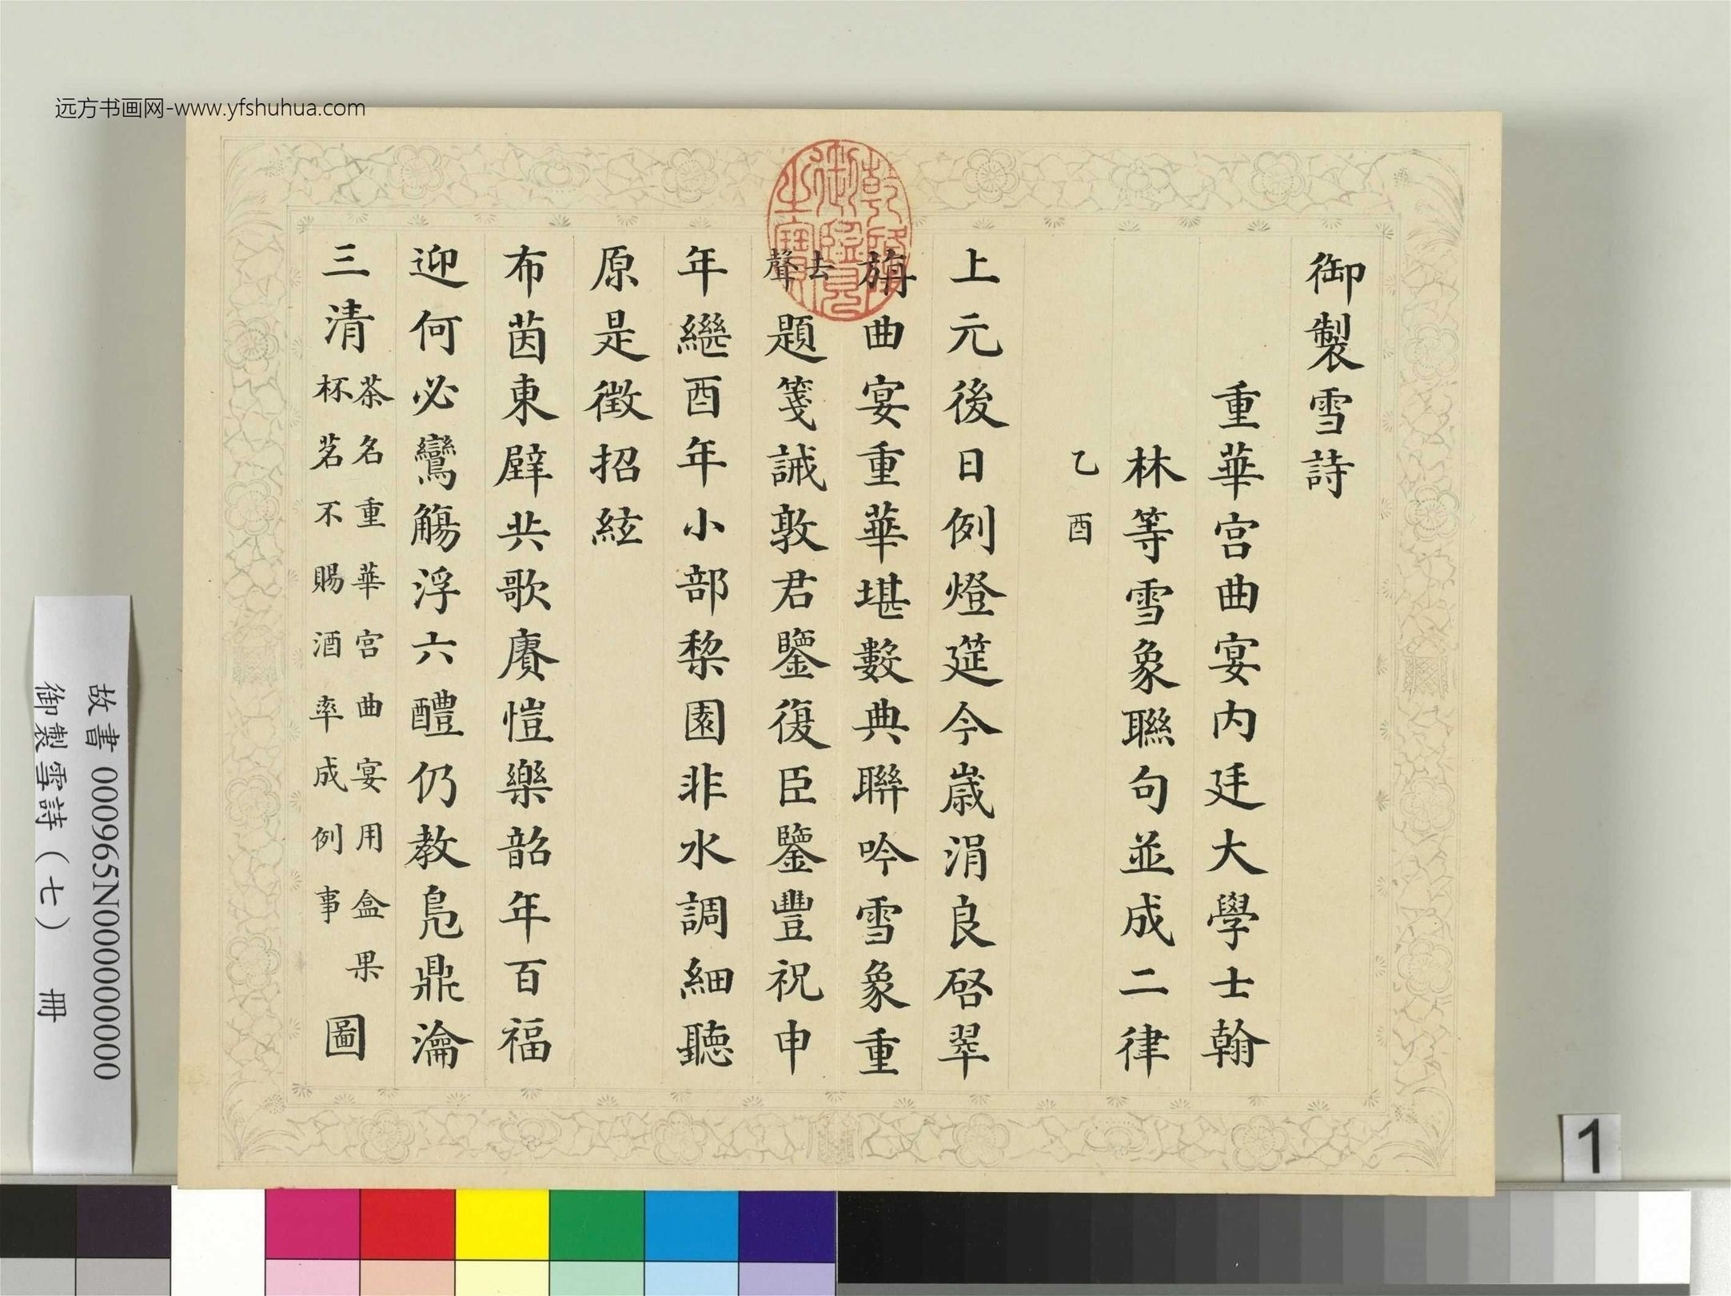 远方书画网-www.yfshuhua.com
御製雪詩
重華宮曲宴内廷大學士翰
林等雪象聯句並成二律
乙酉
上元後日例燈筵今歲涓良啓翠
旃曲宴重華堪數典聯吟雪象重
去聲題箋誡敦君鑒復臣鑒豐祝申
年繼酉年小部棃園非水調細聽
原是徵招絃
布茵東壁共歌賡愷樂韶年百福
迎何必鸞觴浮六醴仍教鳧鼎瀹
三清茶名重華宮曲宴用盒果杯茗不賜酒率成例事圖
乾隆御覽之寶
故書 000965N000000000
御製雪詩（七） 冊
1